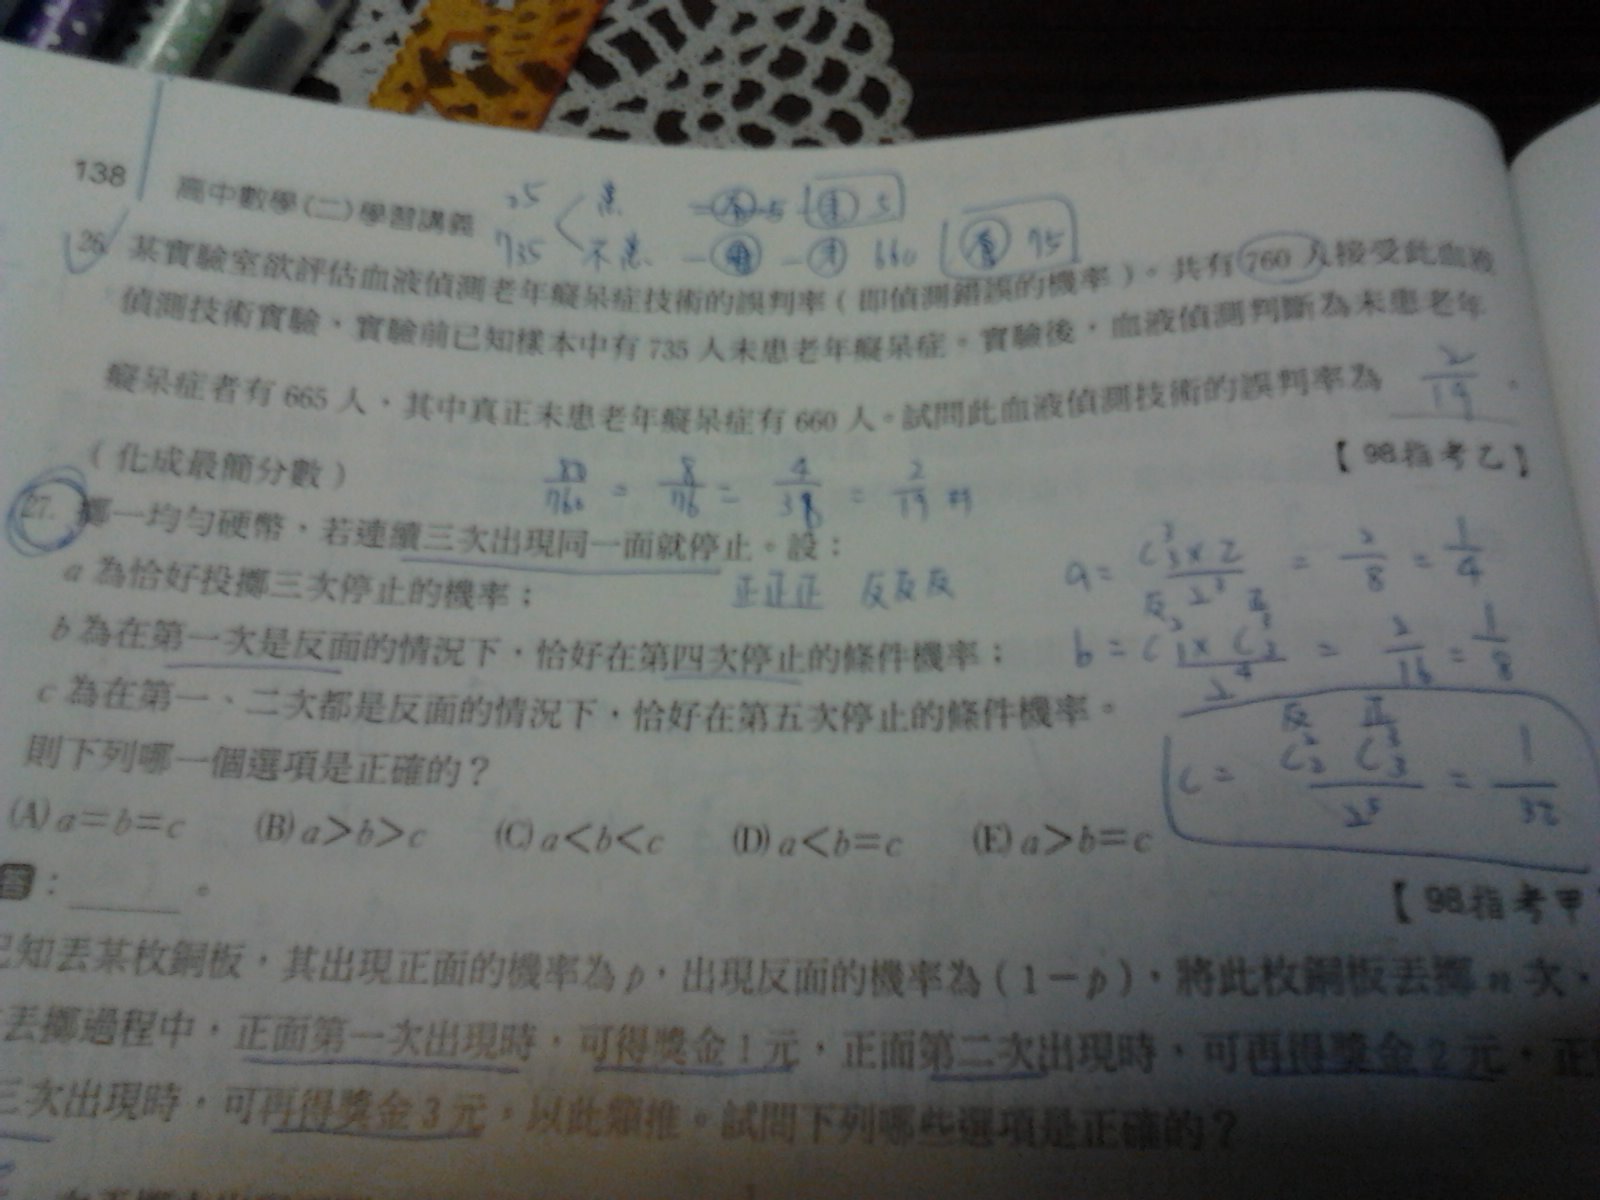 138 高中數學(二)學習講義
25 患 5
735 不患 660 75
26. 某實驗室欲評估血液偵測老年癡呆症技術的誤判率(即偵測錯誤的機率)。共有760人接受此血液
偵測技術實驗,實驗前已知樣本中有735人未患老年癡呆症。實驗後,血液偵測判斷為未患老年
癡呆症者有665人,其中真正未患老年癡呆症有660人。試問此血液偵測技術的誤判率為 2/19 。
(化成最簡分數) 【98指考乙】
80/760 = 8/76 = 4/38 = 2/19
27. 擲一均勻硬幣,若連續三次出現同一面就停止。設:
a 為恰好投擲三次停止的機率; 正正正 反反反
a = C³₃×2/2³ = 2/8 = 1/4
b 為在第一次是反面的情況下,恰好在第四次停止的條件機率;
= 2/16 = 1/8
c 為在第一、二次都是反面的情況下,恰好在第五次停止的條件機率。
反 正
c = C²₂ C³₃/2⁵ = 1/32
則下列哪一個選項是正確的?
(A) a=b=c (B) a>b>c (C) a<b<c (D) a<b=c (E) a>b=c
答: 。 【98指考甲
已知丟某枚銅板,其出現正面的機率為 p,出現反面的機率為(1-p),將此枚銅板丟擲 n 次,
丟擲過程中,正面第一次出現時,可得獎金1元,正面第二次出現時,可再得獎金2元,正
三次出現時,可再得獎金3元,以此類推。試問下列哪些選項是正確的?